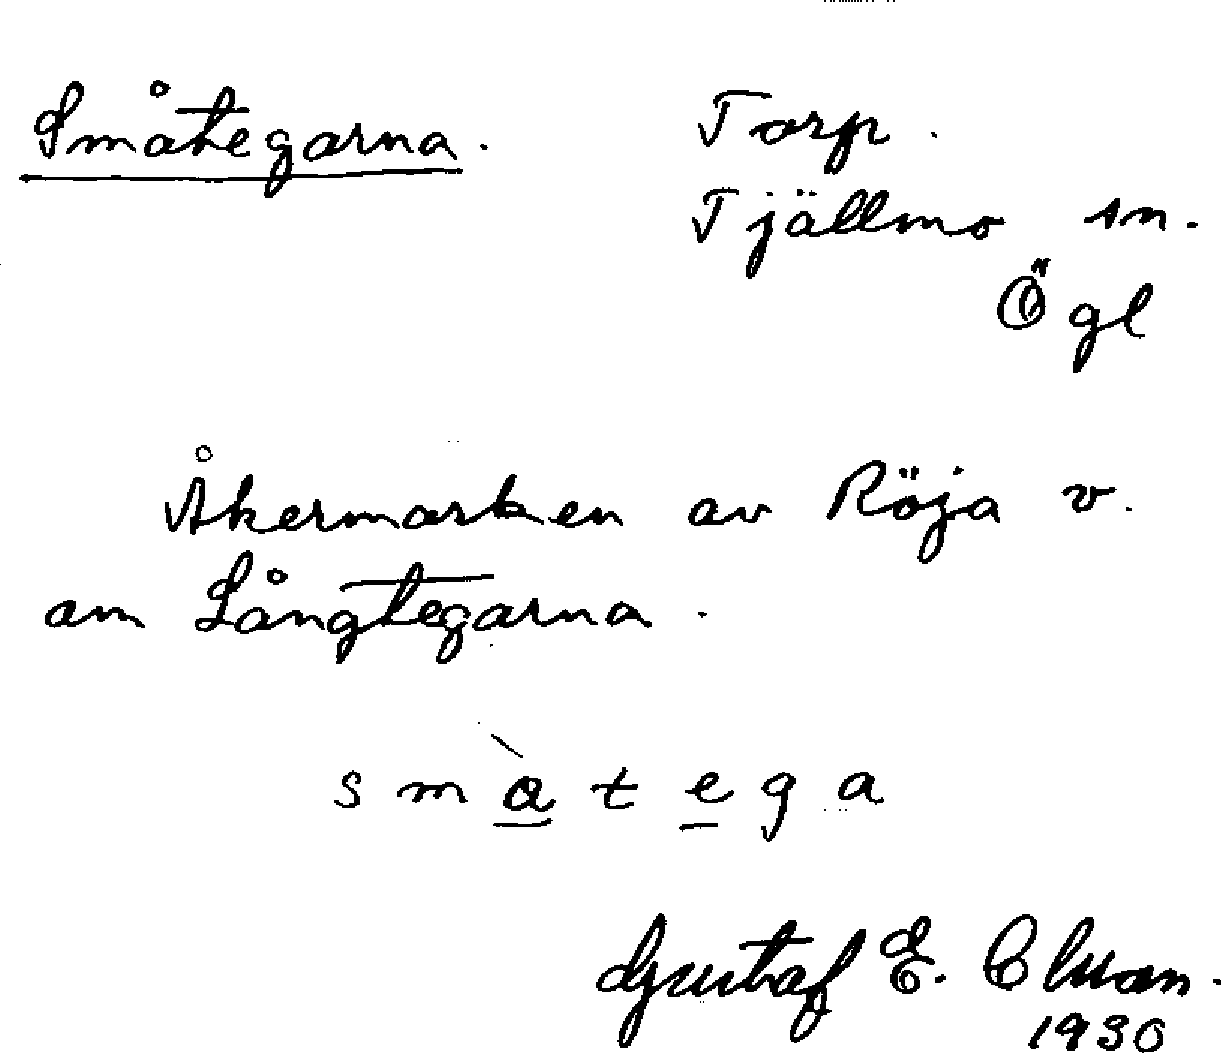 Småtegarna.
Torp.
Tjällmo sn.
Ögl
Åkermarken av Röja v.
om Långtegarna.
s m à t e g a
Gustaf E.
1930